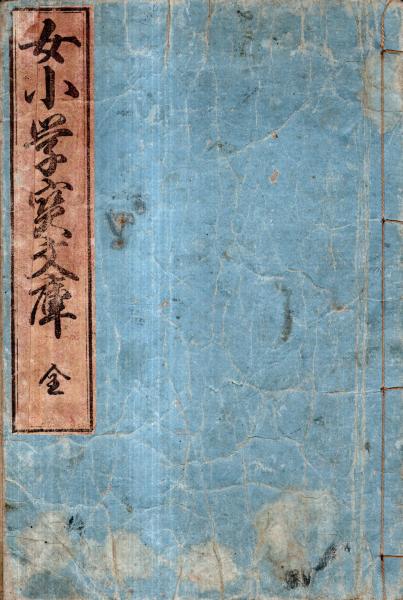 女小学宝文庫
全